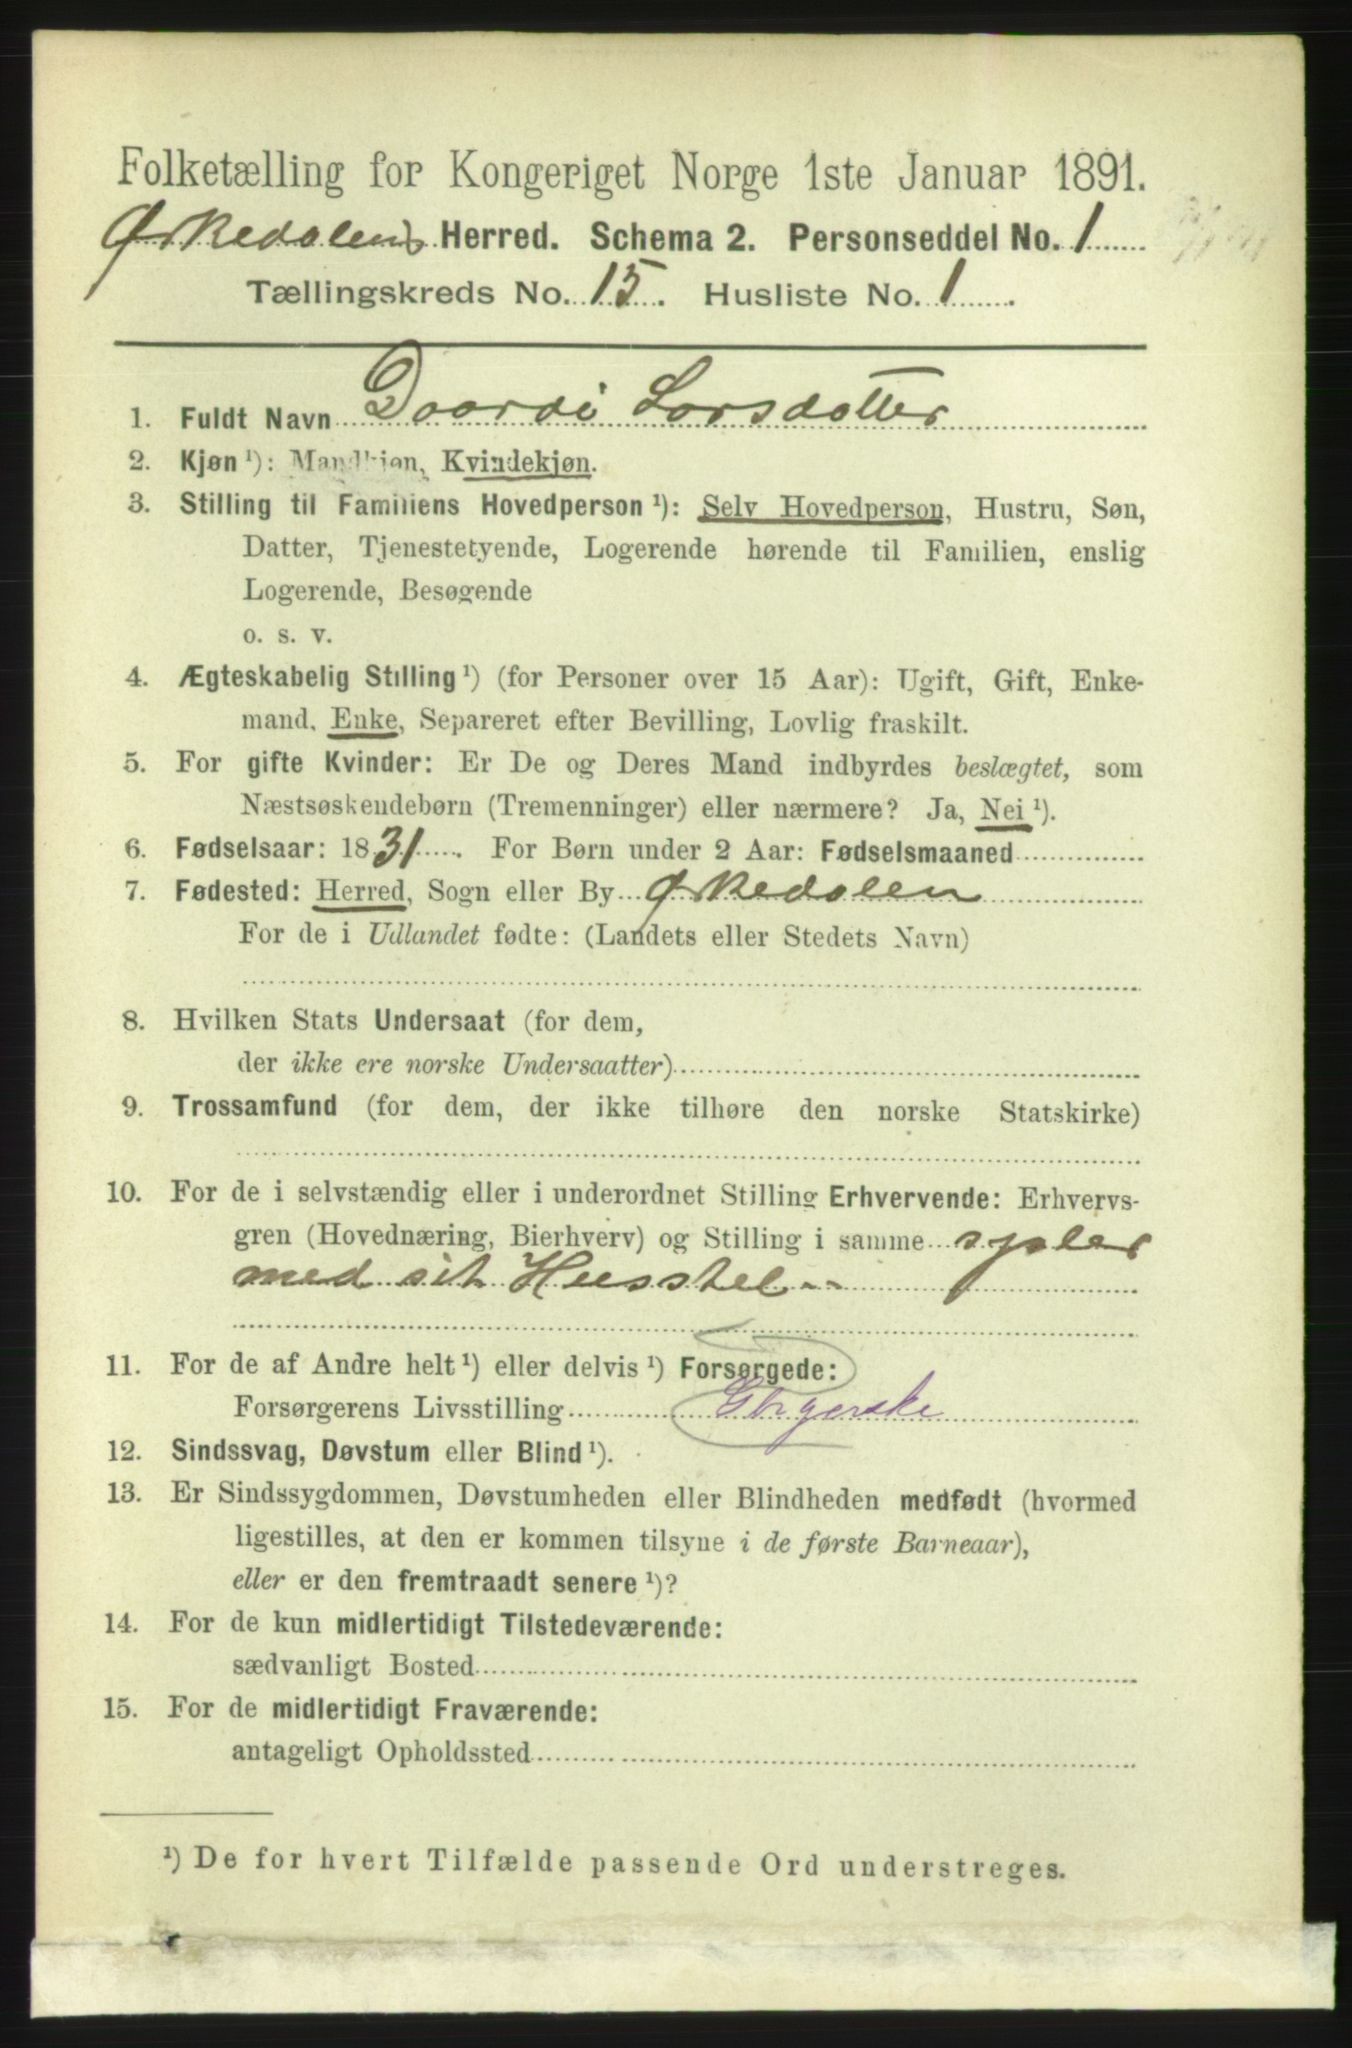 Folketælling for Kongeriget Norge 1ste Januar 1891.
Ørkedalens Herred. Schema 2. Personseddel No. 1
Tællingskreds No. 15. Husliste No. 1.
1. Fuldt Navn Doordi Larsdatter
2. Kjøn ¹): Mandkjøn, Kvindekjøn.
3. Stilling til Familiens Hovedperson ¹): Selv Hovedperson, Hustru, Søn,
Datter, Tjenestetyende, Logerende hørende til Familien, enslig
Logerende, Besøgende
o. s. v.
4. Ægteskabelig Stilling ¹) (for Personer over 15 Aar): Ugift, Gift, Enke-
mand, Enke, Separeret efter Bevilling, Lovlig fraskilt.
5. For gifte Kvinder: Er De og Deres Mand indbyrdes beslægtet, som
Næstsøskendebørn (Tremenninger) eller nærmere? Ja, Nei ¹).
6. Fødselsaar: 1831. For Børn under 2 Aar: Fødselsmaaned
7. Fødested: Herred, Sogn eller By Ørkedalen
For de i Udlandet fødte: (Landets eller Stedets Navn)
8. Hvilken Stats Undersaat (for dem,
der ikke ere norske Undersaatter)
9. Trossamfund (for dem, der ikke tilhøre den norske Statskirke)
10. For de i selvstændig eller i underordnet Stilling Erhvervende: Erhvervs-
gren (Hovednæring, Bierhverv) og Stilling i samme syder
med sit Husstel
11. For de af Andre helt ¹) eller delvis ¹) Forsørgede:
Forsørgerens Livsstilling
12. Sindssvag, Døvstum eller Blind ¹).
13. Er Sindssygdommen, Døvstumheden eller Blindheden medfødt (hvormed
ligestilles, at den er kommen tilsyne i de første Barneaar),
eller er den fremtraadt senere ¹)?
14. For de kun midlertidigt Tilstedeværende:
sædvanligt Bosted
15. For de midlertidigt Fraværende:
antageligt Opholdssted
¹) De for hvert Tilfælde passende Ord understreges.